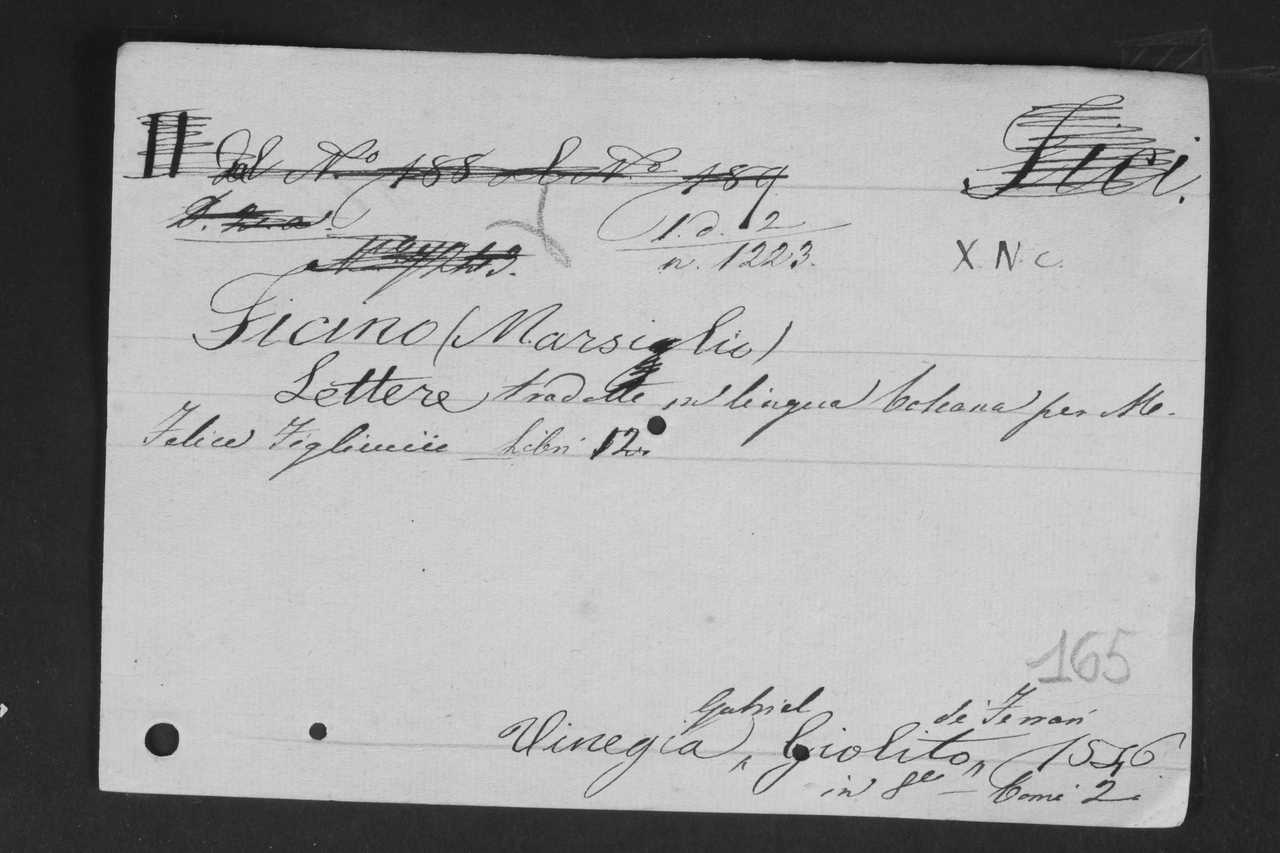 II Dal N.º 188 al N.º 189 Fici.
1. d. 2
n. 1223. X. N. c.
Ficino (Marsiglio)
Lettere tradotte in lingua toscana per M.
Felice Figliucci Libri 12.
165
Gabriel de' Ferrari
Vinegia, Giolito, 1546
in 8º — tomi 2.